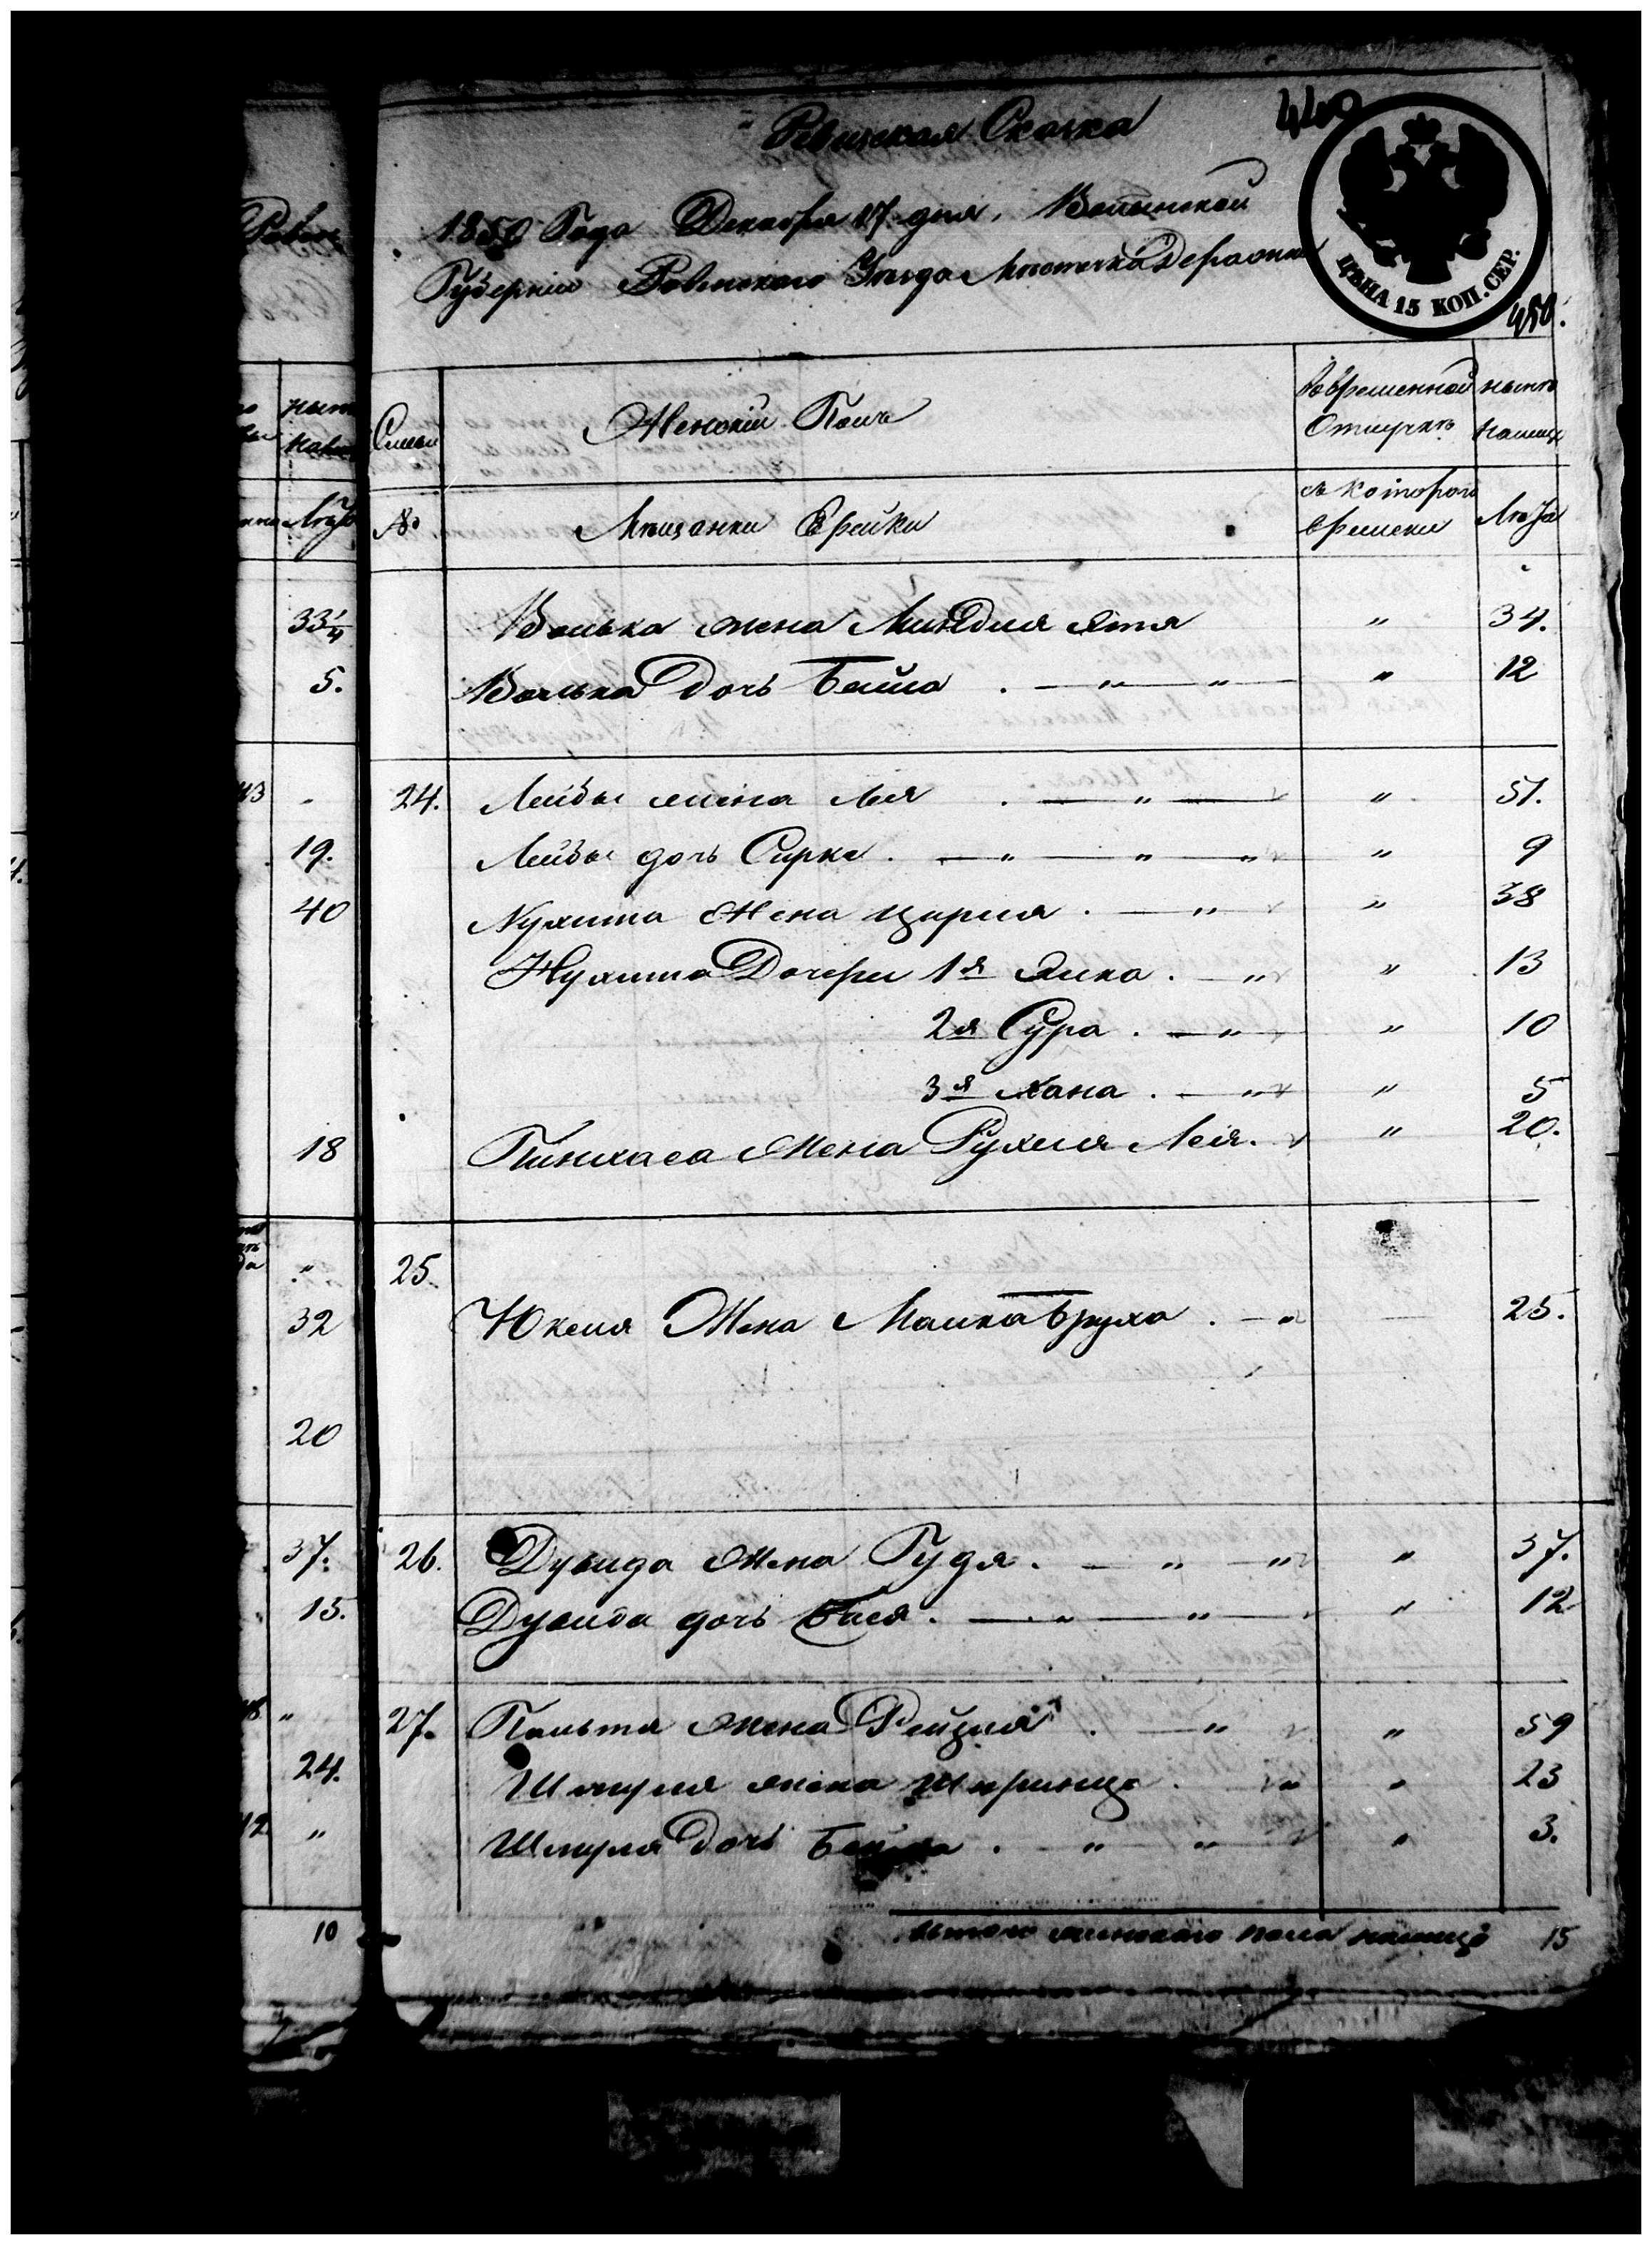 440
Ревизская Сказка
1850 Года Декабря 17 дня. Волынской
Губернии Ровенского Уезда Местечка Деражни
ЦѢНА 15 КОП. СЕР.
450.
Семьи Женский Полъ Во временной Отлучкѣ ныне на лицо
№ Мещанки Еврейки съ которого времени Лета
33 1/4 Волька жена Миндля Этя " 34.
5. Волька дочь Бейла . — " — " — " 12
43 24. Лейбы жена Лея . — " — " 51.
19. Лейбы дочь Сурка . — " — " — " " 9
40 Нухима Жена Цирля . — " " 38
Нухима Дочери 1я Элка . — " " 13
2я Сура . — " " 10
3я Хана . — " " 5
18 Пинхаса Жена Рухля Лея. " 20.
" 25
32 Юкеля Жена Малка Бруха . — " 25.
20
37. 26. Дувида Жена Гудя . — " — " " 37.
15. Дувида дочь Бася . — " — " — " 12
" 27. Пальтя жена Рейзля . — " " 59
24. Шмуля жена Шпринца . " " 23
" Шмуля дочь Бейла . " " " 3.
10 Итого женского пола на лицо 15